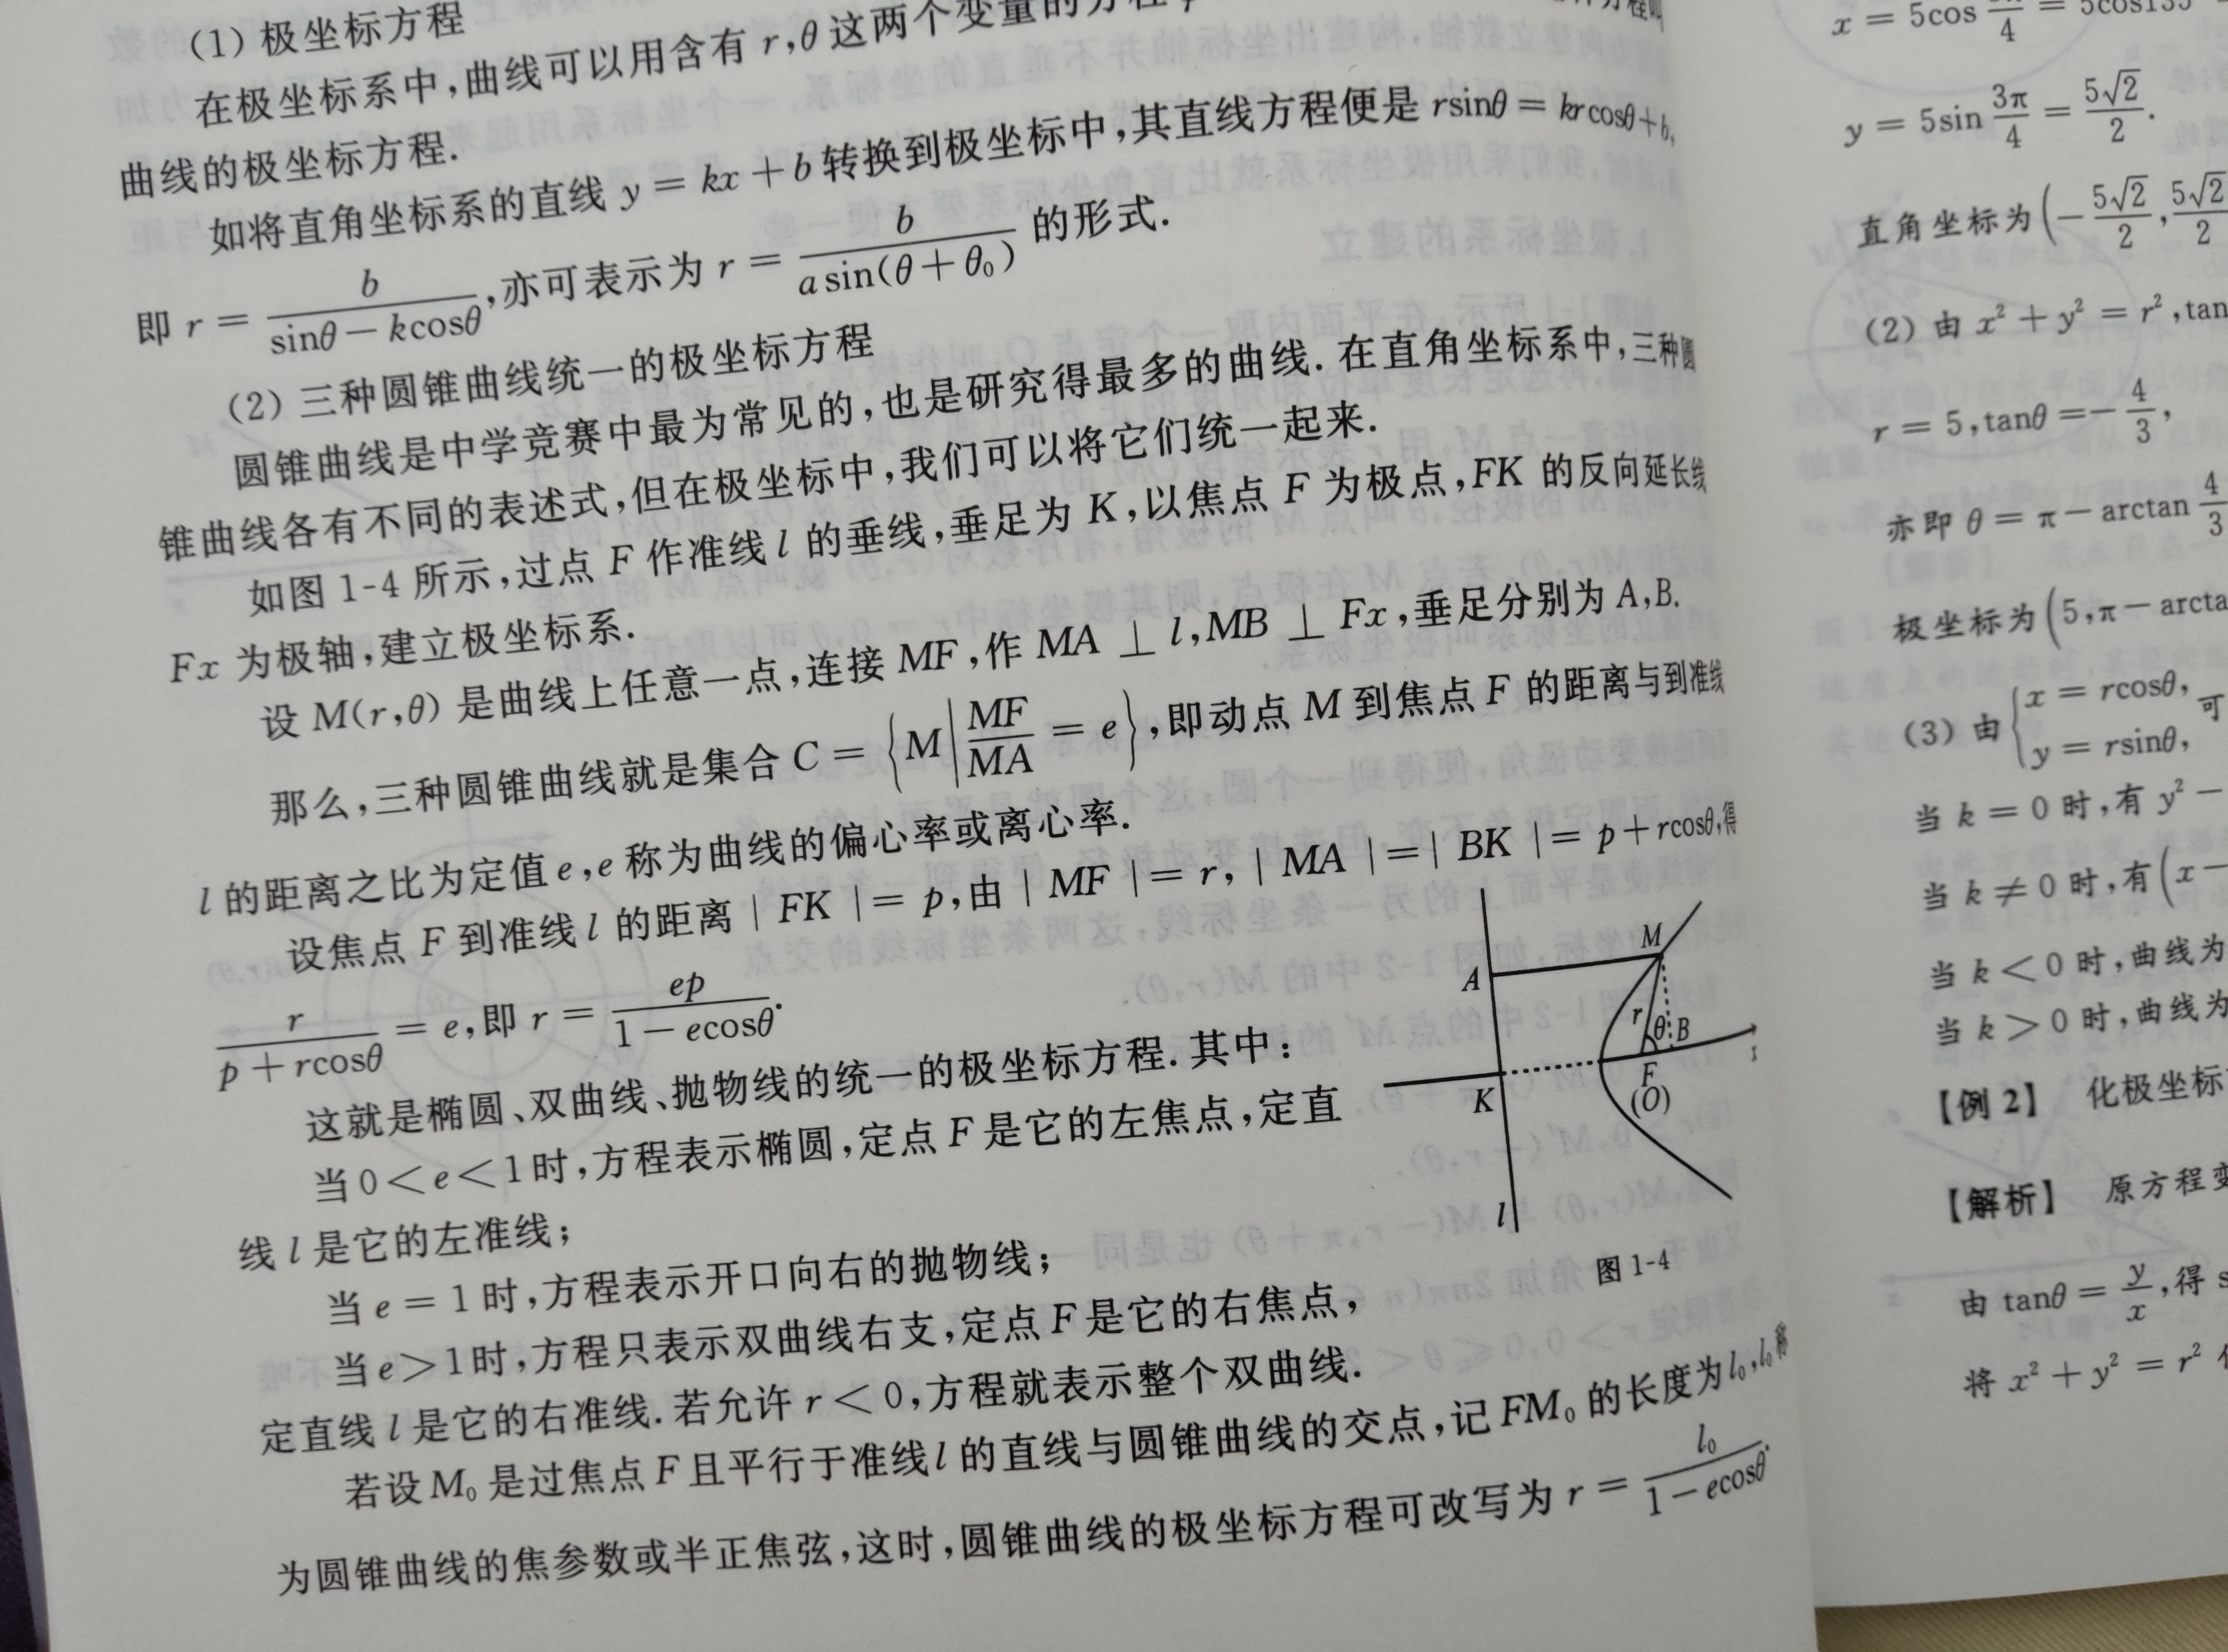 (1) 极坐标方程
在极坐标系中,曲线可以用含有 r,θ 这两个变量的方程
曲线的极坐标方程.
如将直角坐标系的直线 y = kx + b 转换到极坐标中,其直线方程便是 rsinθ = krcosθ+b,
即 r = b/(sinθ − kcosθ),亦可表示为 r = b/(asin(θ+θ₀)) 的形式.
(2) 三种圆锥曲线统一的极坐标方程
圆锥曲线是中学竞赛中最为常见的,也是研究得最多的曲线. 在直角坐标系中,三种圆
锥曲线各有不同的表述式,但在极坐标中,我们可以将它们统一起来.
如图 1-4 所示,过点 F 作准线 l 的垂线,垂足为 K,以焦点 F 为极点,FK 的反向延长线
Fx 为极轴,建立极坐标系.
设 M(r,θ) 是曲线上任意一点,连接 MF,作 MA ⊥ l,MB ⊥ Fx,垂足分别为 A,B.
那么,三种圆锥曲线就是集合 C = {M | MF/MA = e},即动点 M 到焦点 F 的距离与到准线
l 的距离之比为定值 e,e 称为曲线的偏心率或离心率.
设焦点 F 到准线 l 的距离 | FK | = p,由 | MF | = r, | MA | = | BK | = p + rcosθ,得
r/(p + rcosθ) = e,即 r = ep/(1 − ecosθ).
这就是椭圆、双曲线、抛物线的统一的极坐标方程. 其中:
当 0 < e < 1 时,方程表示椭圆,定点 F 是它的左焦点,定直
线 l 是它的左准线;
当 e = 1 时,方程表示开口向右的抛物线;
当 e > 1 时,方程只表示双曲线右支,定点 F 是它的右焦点,
定直线 l 是它的右准线. 若允许 r < 0,方程就表示整个双曲线.
若设 M₀ 是过焦点 F 且平行于准线 l 的直线与圆锥曲线的交点,记 FM₀ 的长度为 l₀,l₀ 称
为圆锥曲线的焦参数或半正焦弦,这时,圆锥曲线的极坐标方程可改写为 r = l₀/(1 − ecosθ).
M
A
r
θ
B
K
F
(O)
l
图 1-4
x = 5cos 3π/4 = 5cos135
y = 5sin 3π/4 = 5√2/2.
直角坐标为 (− 5√2/2, 5√2/2
(2) 由 x² + y² = r²,tan
r = 5,tanθ = − 4/3,
亦即 θ = π − arctan 4/3
极坐标为 (5,π − arcta
(3) 由 { x = rcosθ, y = rsinθ, 可
当 k = 0 时,有 y² −
当 k ≠ 0 时,有 (x −
当 k < 0 时,曲线为
当 k > 0 时,曲线为
【例 2】 化极坐标
【解析】 原方程变
由 tanθ = y/x,得 s
将 x² + y² = r²